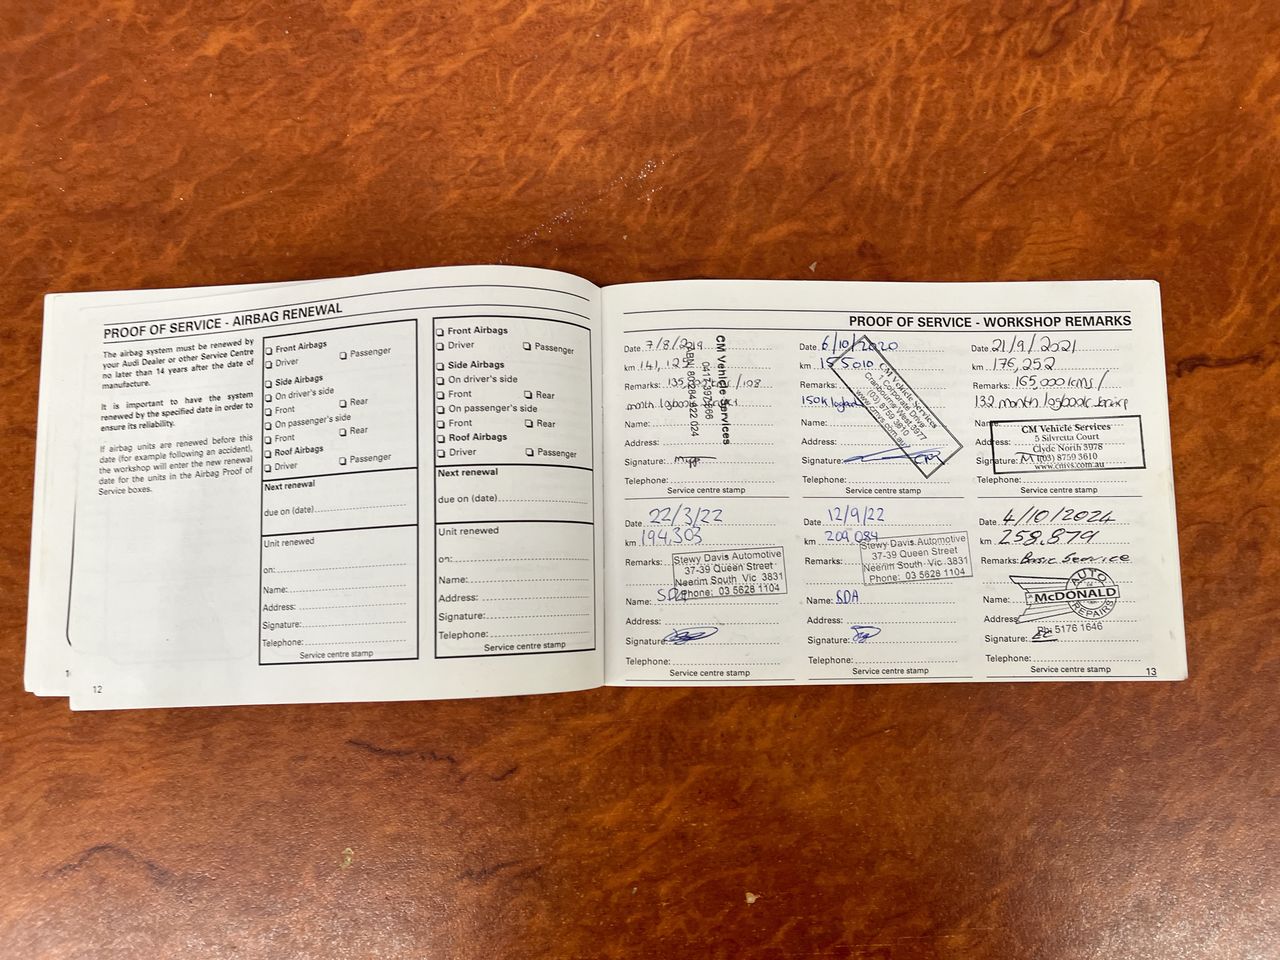 PROOF OF SERVICE - AIRBAG RENEWAL
The airbag system must be renewed by
your Audi Dealer or other Service Centre
no later than 14 years after the date of
manufacture.
It is important to have the system
renewed by the specified date in order to
ensure its reliability.
If airbag units are renewed before this
date (for example following an accident),
the workshop will enter the new renewal
date for the units in the Airbag Proof of
Service boxes.
Front Airbags
Driver Passenger
Side Airbags
On driver's side
Front Rear
On passenger's side
Front Rear
Roof Airbags
Driver Passenger
Next renewal
due on (date)
Unit renewed
on:
Name:
Address:
Signature:
Telephone:
Service centre stamp
Front Airbags
Driver Passenger
Side Airbags
On driver's side
Front Rear
On passenger's side
Front Rear
Roof Airbags
Driver Passenger
Next renewal
due on (date)
Unit renewed
on:
Name:
Address:
Signature:
Telephone:
Service centre stamp
12
PROOF OF SERVICE - WORKSHOP REMARKS
Date 7/8/2019
km 141,
Remarks: /108
month
Name:
Address:
Signature:
Telephone:
Service centre stamp
CM Vehicle Services
Date 6/10/2020
km 155010
Remarks:
150K
Name:
Address:
Signature:
Telephone:
Service centre stamp
CM Vehicle Services
1 Corporate Drive
Cranbourne West 3977
(03) 8759 3610
www.cmvs.com.au
Date 21/9/2021
km 176,252
Remarks: 165,000 kms /
132 month logbook service
Name:
Address:
Signature:
Telephone:
Service centre stamp
CM Vehicle Services
5 Silvretta Court
Clyde North 3978
(03) 8759 3610
www.cmvs.com.au
Date 22/3/22
km 194,303
Remarks:
Name: SDA
Address:
Signature:
Telephone:
Service centre stamp
Stewy Davis Automotive
37-39 Queen Street
Neerim South Vic 3831
Phone: 03 5628 1104
Date 12/9/22
km 209,084
Remarks:
Name: SDA
Address:
Signature:
Telephone:
Service centre stamp
Stewy Davis Automotive
37-39 Queen Street
Neerim South Vic 3831
Phone: 03 5628 1104
Date 4/10/2024
km 258,879
Remarks: Basic Service
Name:
Address:
Signature:
Telephone:
Service centre stamp
AUTO
McDONALD
REPAIRS
Ph: 5176 1646
13